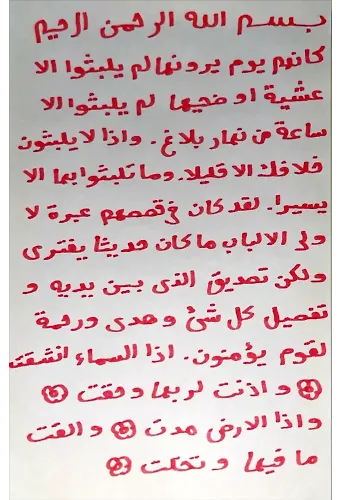 بسم الله الرحمن الرحيم
كانهم يوم يرونها لم يلبثوا الا
عشية او ضحيها لم يلبثوا الا
ساعة من نهار بلاغ. واذا لا يلبثون
خلافك الا قليلا. وما تلبثوا بها الا
يسيرا. لقد كان في قصصهم عبرة لا
ولى الالباب ما كان حديثا يفترى
ولكن تصديق الذى بين يديه و
تفصيل كل شئ وهدى ورحمة
لقوم يؤمنون. اذا السماء انشقت
و اذنت لربها وحقت
واذا الارض مدت و القت
ما فيها و تخلت